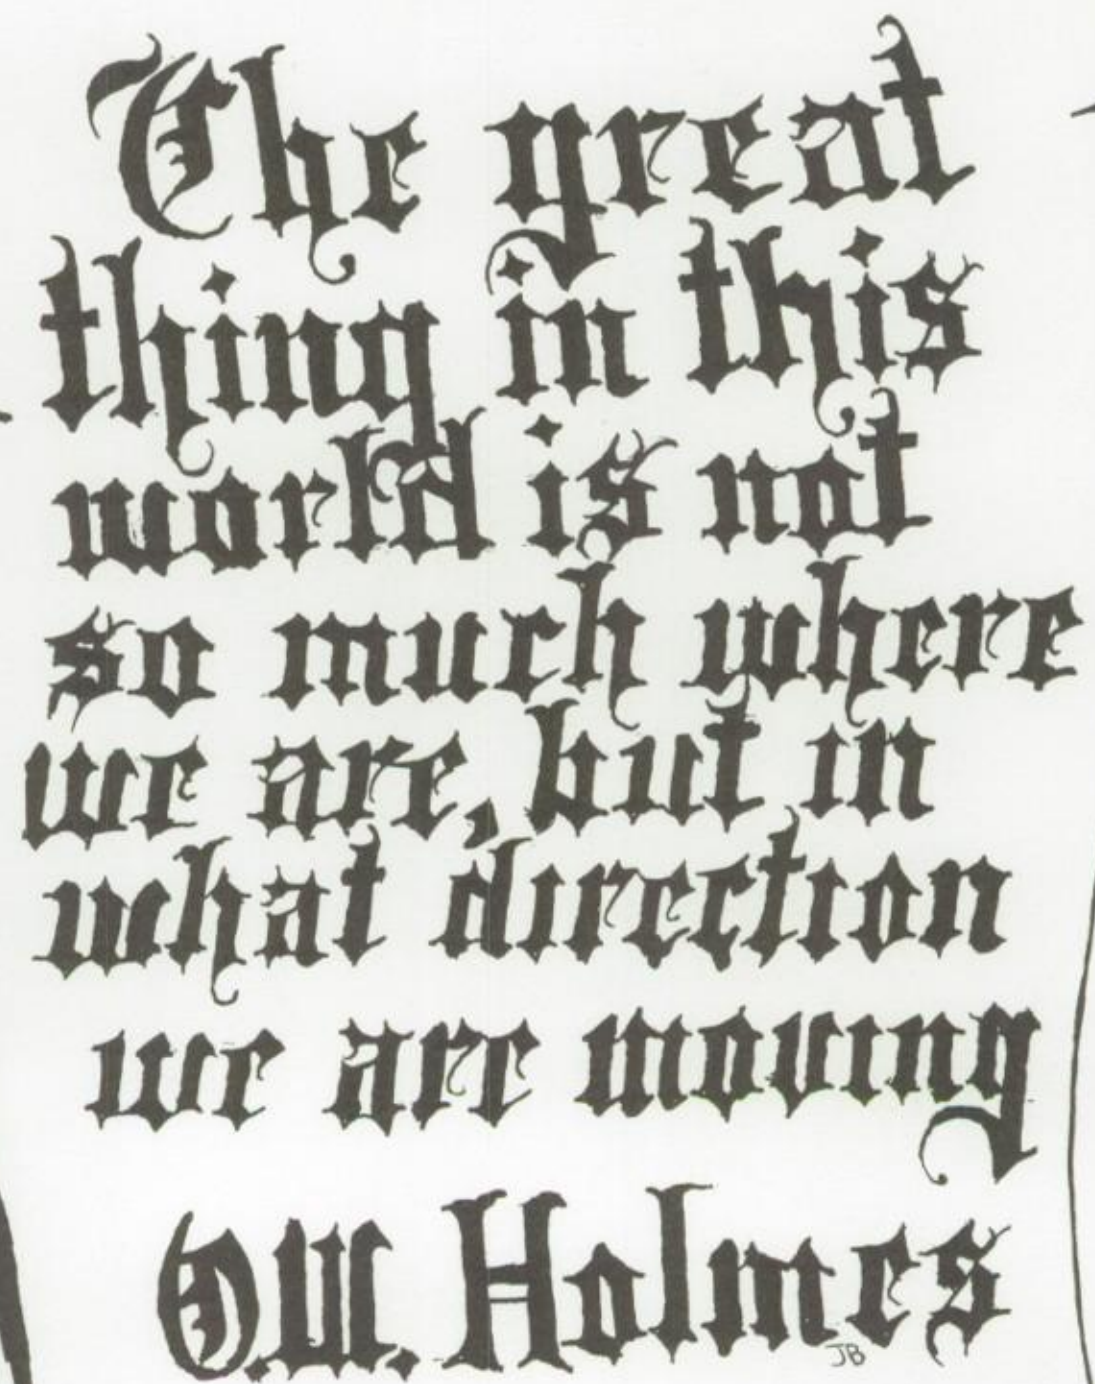 The great
thing in this
world is not
so much where
we are, but in
what direction
we are moving
O.W. Holmes
JB